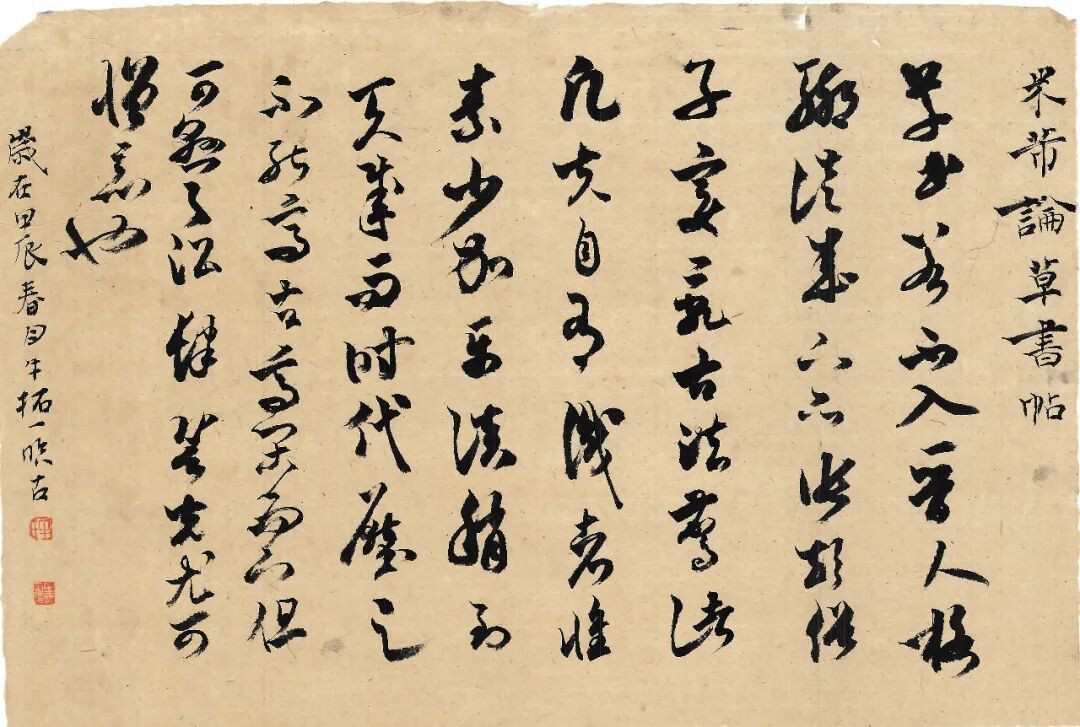 米芾論草書帖
草書若不入晉人格
輒徒成下品張顛俗
子變亂古法驚諸
凡夫自有識者懷
素少加平淡稍到
天成而時代壓之
不能高古高閑而下但
可懸之酒肆䛒光尤可
憎惡也
歲在甲辰春日牛拓一臨古